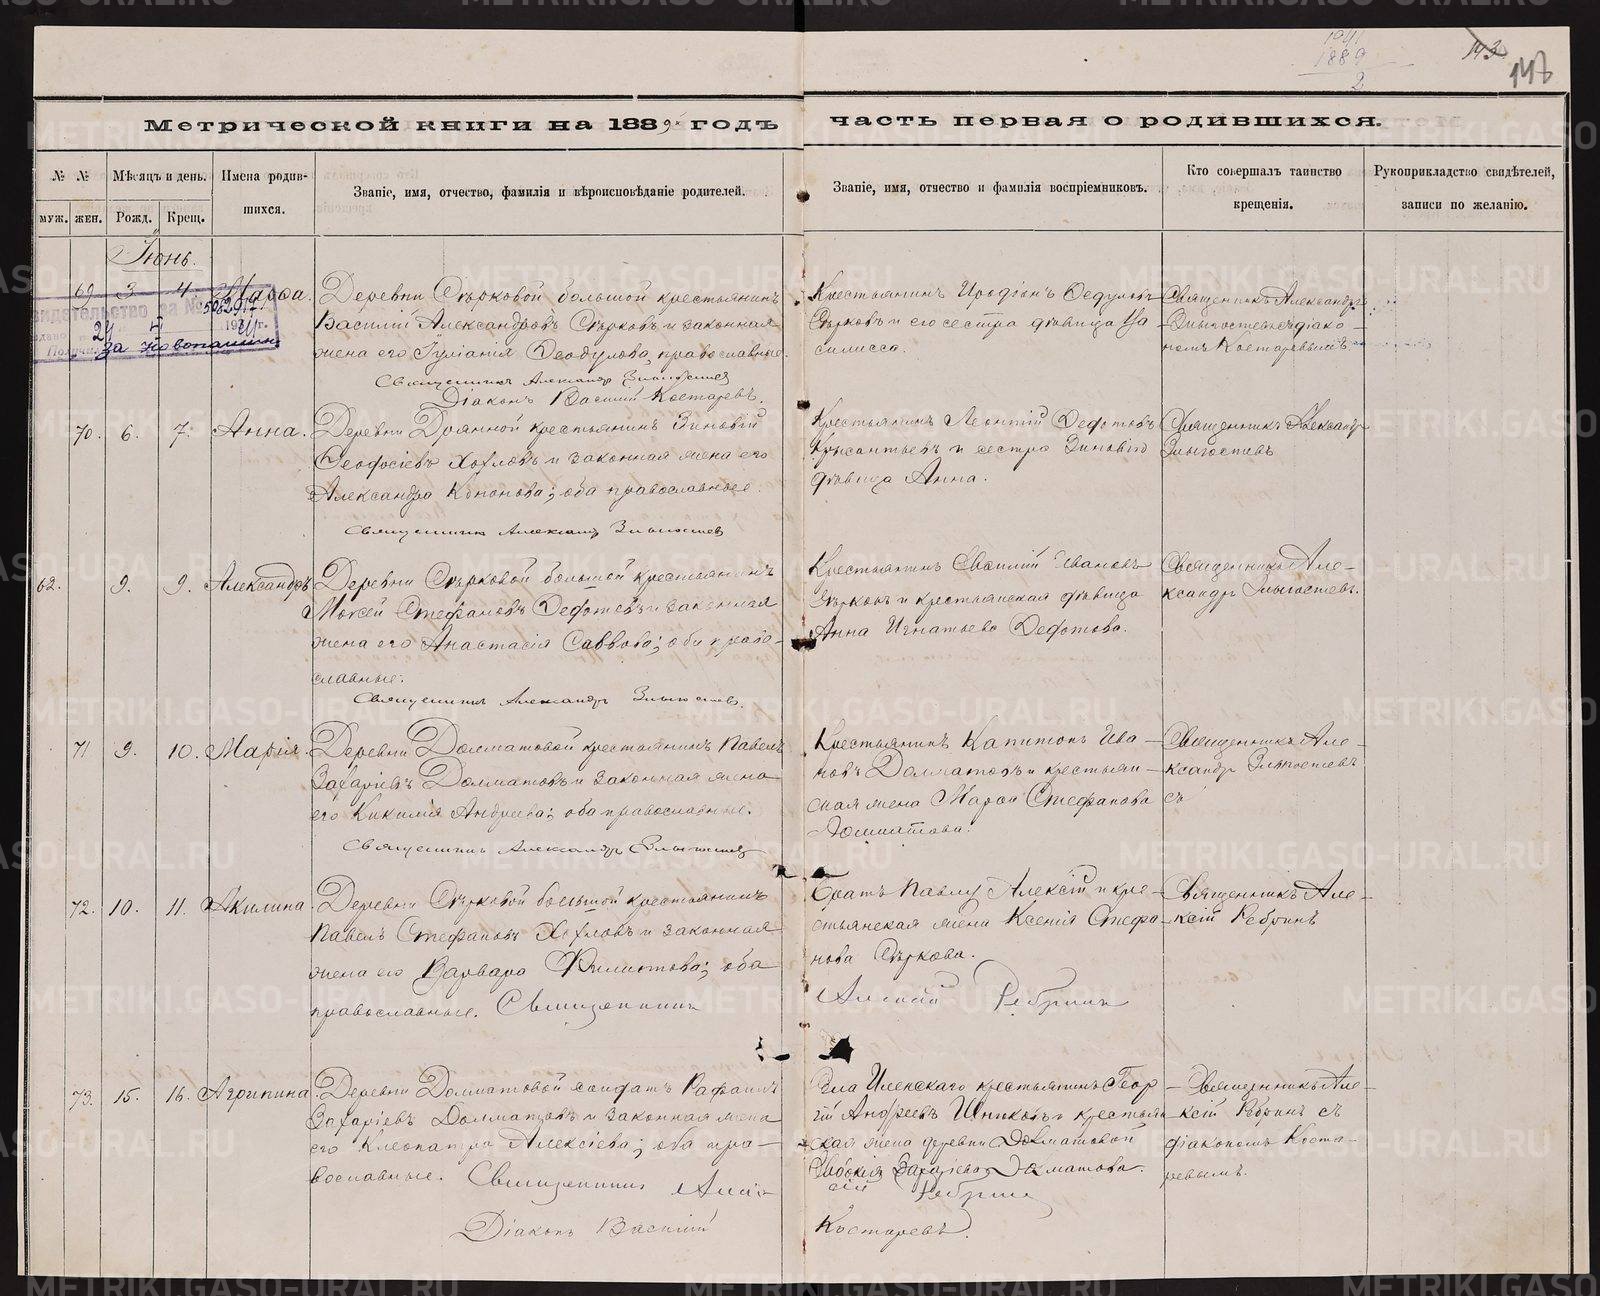 1889
2
143
146
Метрической книги на 1889 годъ часть первая о родившихся.
№ №
муж. жен.
Мѣсяцъ и день.
Рожд. Крещ.
Имена родив-
шихся.
Званіе, имя, отчество, фамилія и вѣроисповѣданіе родителей.
Званіе, имя, отчество и фамилія воспріемниковъ.
Кто совершалъ таинство
крещенія.
Рукоприкладство свидѣтелей,
записи по желанію.
Іюнь.
69 3 4. Марѳа.
Деревни Сѣрковой большой крестьянинъ
Василій Александровъ Сѣрковъ и законная
жена его Іуліанія Ѳеодулова, православные.
Священникъ Александръ
Діаконъ Василій Костаревъ.
Крестьянинъ Иродіонъ Ѳедуловъ
Сѣрковъ и его сестра дѣвица
Священникъ Александръ
съ діако-
номъ Костаревымъ
70. 6. 7. Анна.
Деревни крестьянинъ Зиновій
Ѳеодосіевъ Хохловъ и законная жена его
Александра Кононова; оба православные.
Священникъ Александръ
Крестьянинъ Леонтій
и сестра Зиновія
дѣвица Анна.
Священникъ Александръ
62. 9. 9. Александръ
Деревни Сѣрковой большой крестьянинъ
Моисей Стефановъ Дефотовъ и законная
жена его Анастасія Саввова; оба право-
славные.
Священникъ Александръ
Крестьянинъ Василій Ивановъ
Сѣрковъ и крестьянская дѣвица
Анна Игнатьева Дефотова.
Священникъ Але-
ксандръ
71 9. 10. Марія.
Деревни Долматовой крестьянинъ Павелъ
Захаріевъ Долматовъ и законная жена
его Андреева; оба православные.
Священникъ Александръ
Крестьянинъ Капитонъ Ива-
новъ Долматовъ и крестьян-
ская жена Марѳа Стефанова
Долматова.
Священникъ Але-
ксандръ
72. 10. 11. Акилина
Деревни Сѣрковой большой крестьянинъ
Павелъ Стефановъ Хохловъ и законная
жена его Варвара Филиппова; оба
православные. Священникъ
Братъ Павлу Алексій и кре-
стьянская жена Ксенія Стефа-
нова Сѣркова.
Алексій Ребринъ
Священникъ Але-
ксій Ребринъ
73. 15. 16. Агрипина.
Деревни Долматовой солдатъ Рафаилъ
Захаріевъ Долматовъ и законная жена
его Клеопатра Алексіева; оба пра-
вославные. Священникъ Алек-
Діаконъ Василій
Села Иленскаго крестьянинъ Геор-
гій Андреевъ Шниковъ и крестьян
ская жена деревни Долматовой
Захаріева Долматова.
сій Ребринъ
Костаревъ.
Священникъ Але-
ксій Ребринъ съ
діакономъ Коста-
ревымъ.
METRIKI.GASO-URAL.RU